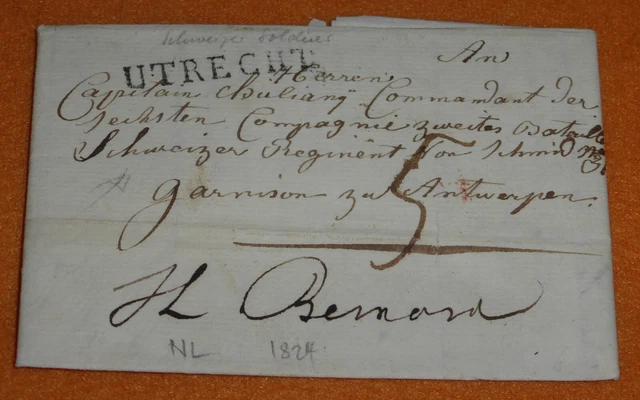 Schweizer Soldaten
UTRECHT
An
Herren
Capitain Juliany Commandant der
sechsten Compagnie zweites Bataill
Schweizer Regiment Von Schmid
5
garnison zu Antwerpen.
Bernard
NL 1824